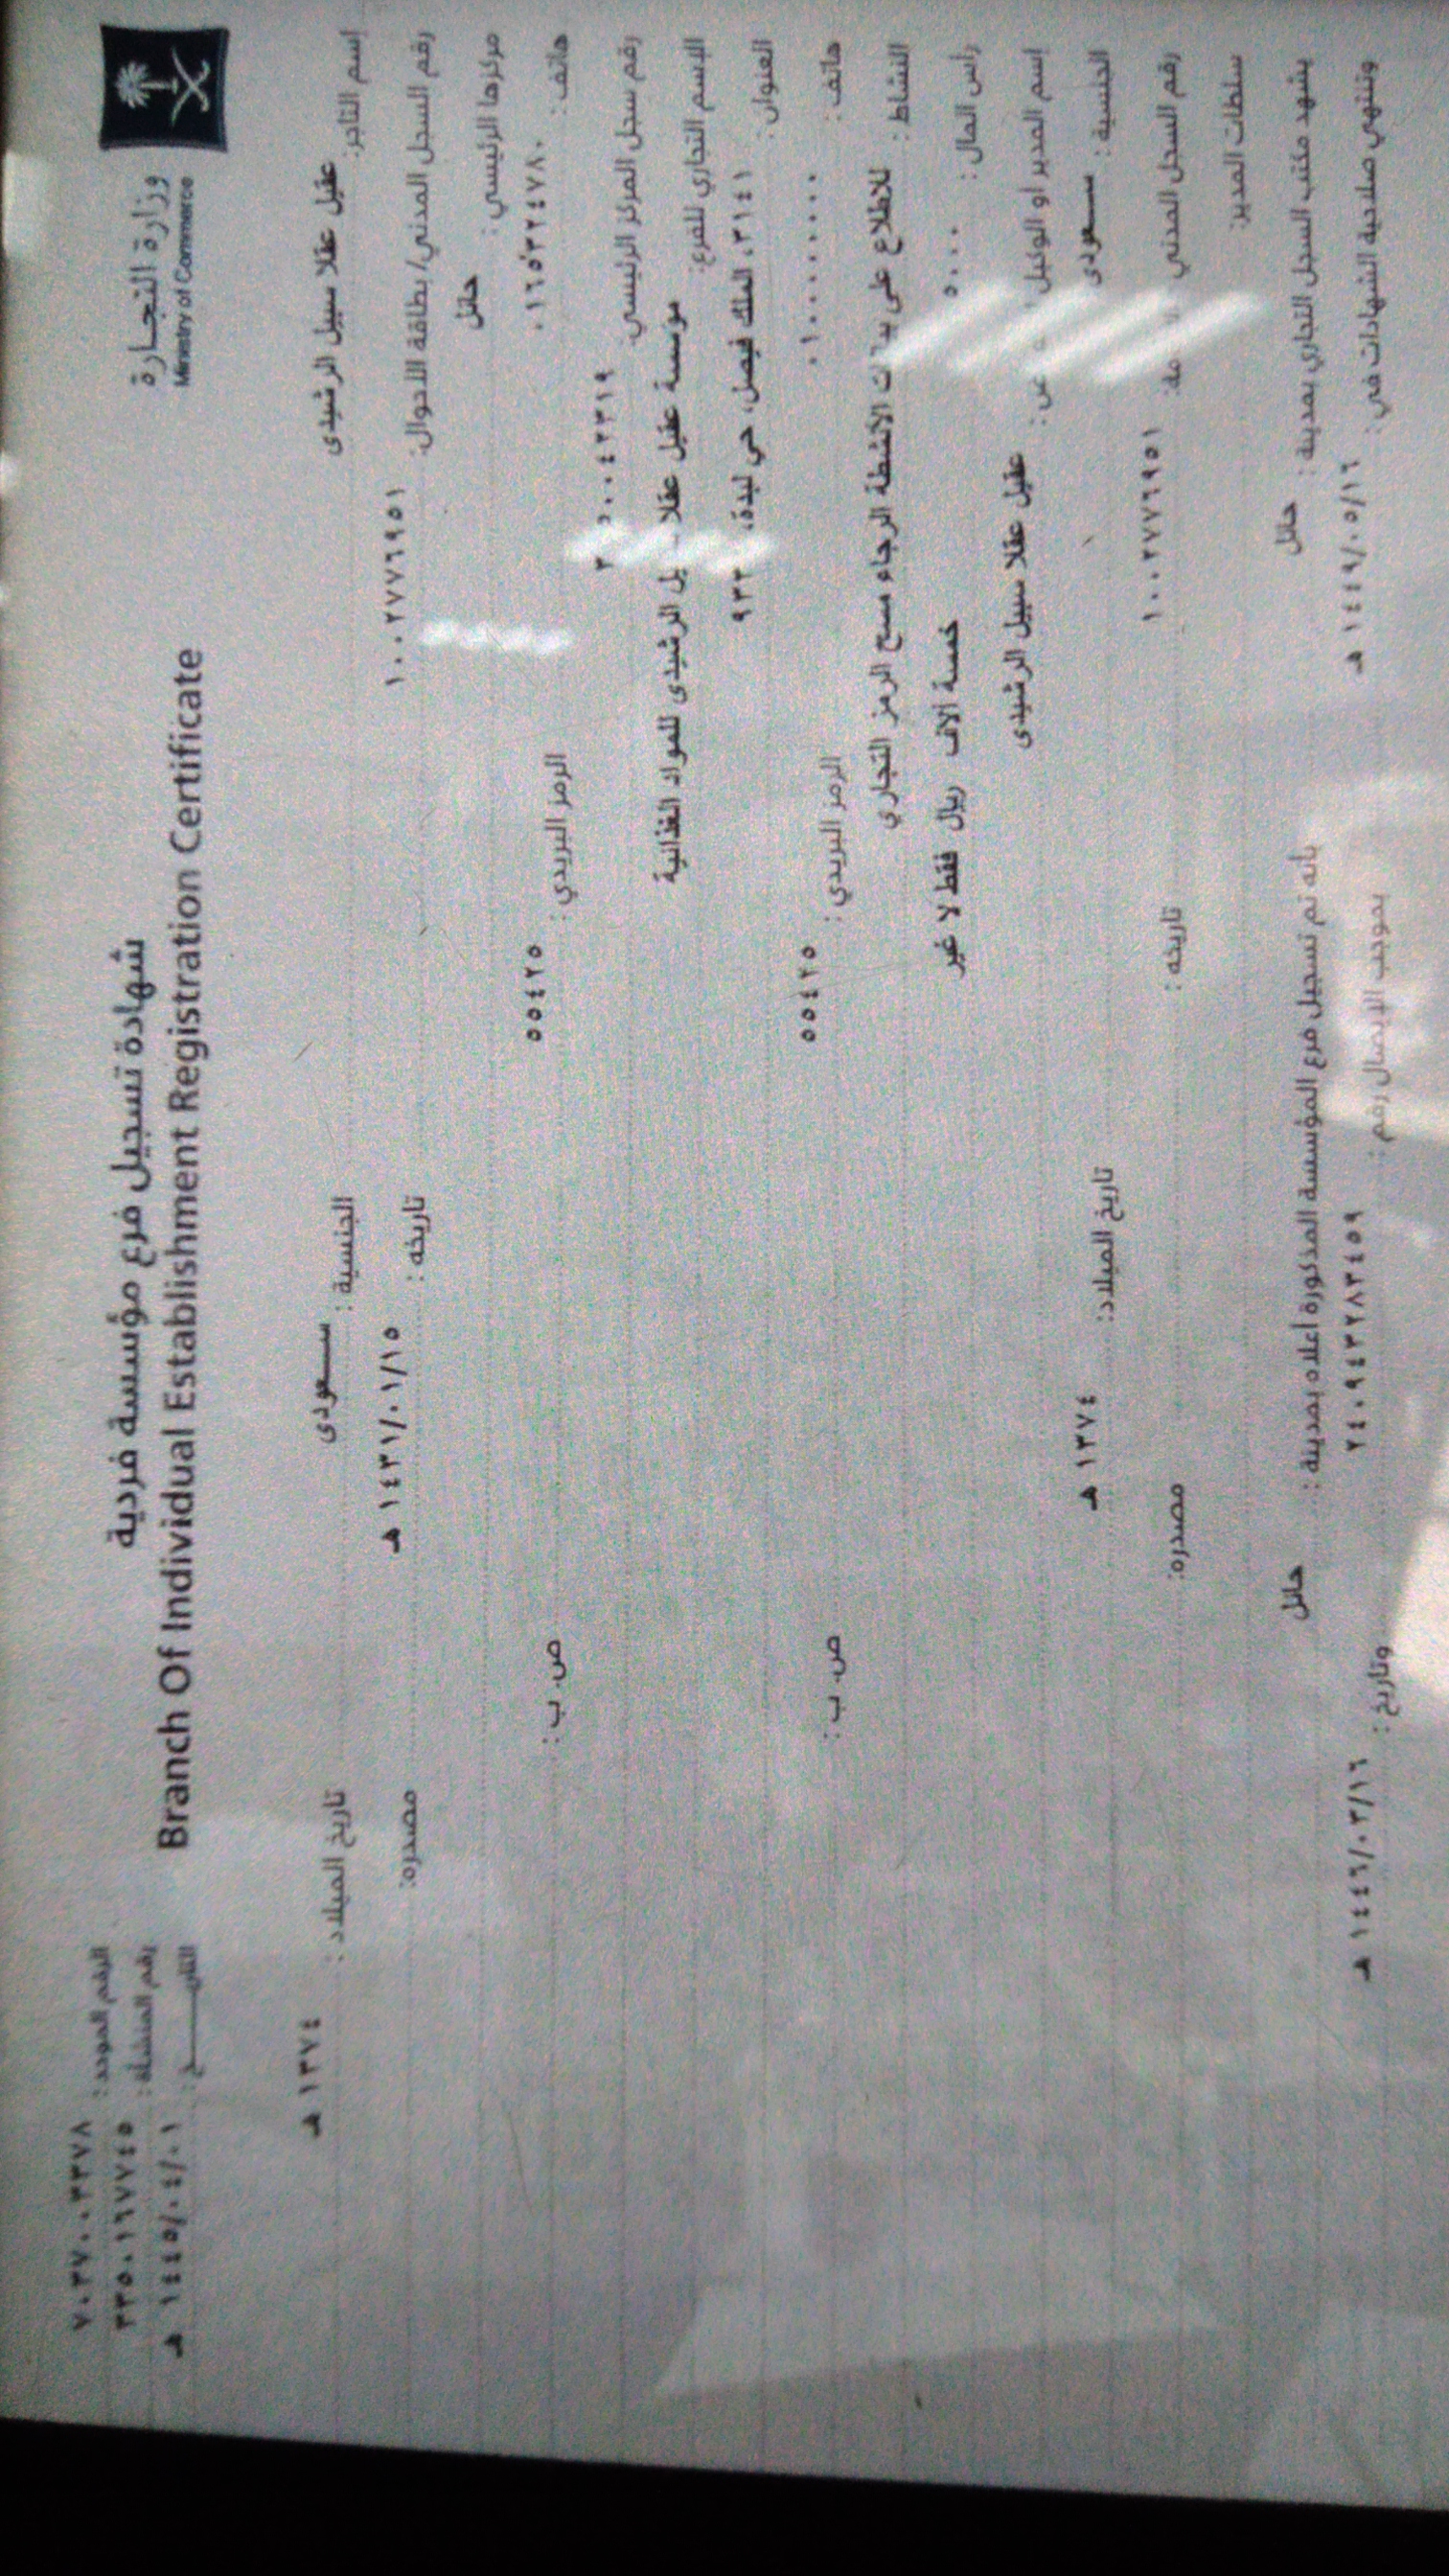 وزارة التجارة
Ministry of Commerce
شهادة تسجيل فرع مؤسسة فردية
Branch Of Individual Establishment Registration Certificate
الرقم الموحد: ٧٠٣٧٠٠٣٣٧٨
رقم المنشأة: ٣٣٥٠١٦٧٧٤٥
التاريخ: ١٤٤٥/٠٤/٠١ هـ
إسم التاجر: عقيل عقلا سبيل الرشيدى الجنسية: سعودى تاريخ الميلاد: ١٣٧٤ هـ
رقم السجل المدني/ بطاقة الأحوال: ١٠٠٢٧٧٦٩٥١ تاريخه: ١٤٣١/٠١/١٥ هـ مصدره:
مركزها الرئيسي: حائل
هاتف: ٠١٦٥٣٢٤٧٨٠ الرمز البريدي: ٥٥٤٢٥ ص. ب:
رقم سجل المركز الرئيسي:
الإسم التجاري للفرع: مؤسسة عقيل عقلا الرشيدى للمواد الغذائية
العنوان: ٣١٤١، الملك فيصل، حي لبدة،
هاتف: ٠١٠٠٠٠٠٠٠٠ الرمز البريدي: ٥٥٤٢٥ ص. ب:
النشاط: للاطلاع على الأنشطة الرجاء مسح الرمز التجاري
رأس المال: ٥٠٠٠ خمسة آلاف ريال فقط لا غير
إسم المدير او الوكيل عقيل عقلا سبيل الرشيدى
الجنسية: سعودى تاريخ الميلاد: ١٣٧٤ هـ
رقم السجل المدني ١٠٠٢٧٧٦٩٥١ تاريخه: مصدره:
سلطات المدير:
يشهد مكتب السجل التجاري بمدينة: حائل بأنه تم تسجيل فرع المؤسسة المذكورة أعلاه بمدينة: حائل
وتنتهي صلاحية الشهادات في: ١٤٤٩/٠٥/١٦ هـ بموجب الإيصال رقم: ٢٤٠٩٤٣٢٨٣٤٥٩ وتاريخ: ١٤٤٦/٠٣/١٦ هـ